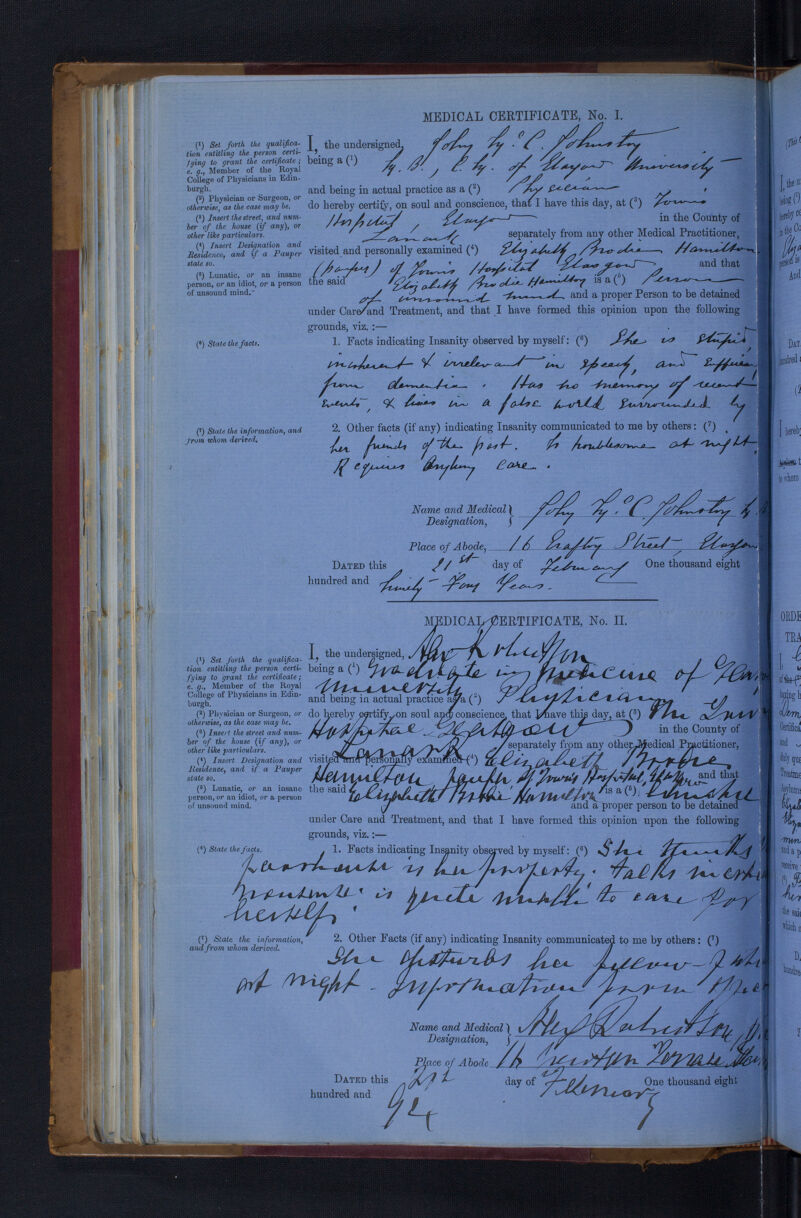 MEDICAL CERTIFICATE, No. I.
(¹) Set forth the qualifica-
tion entitling the person certi-
fying to grant the certificate;
e. g., Member of the Royal
College of Physicians in Edin-
burgh.
(²) Physician or Surgeon, or
otherwise, as the case may be.
(³) Insert the street, and num-
ber of the house (if any), or
other like particulars.
(⁴) Insert Designation and
Residence, and if a Pauper
state so.
(⁵) Lunatic, or an insane
person, or an idiot, or a person
of unsound mind.
I, the undersigned, John McC. Johnston
being a (¹) M. B., C. M. of Glasgow University
and being in actual practice as a (²) Physician
do hereby certify, on soul and conscience, that I have this day, at (³) Towns
Hospital, Glasgow in the County of
Lanark separately from any other Medical Practitioner,
visited and personally examined (⁴) Elizabeth Brodie Hamilton
(pauper) of Towns Hospital Glasgow and that
the said Elizabeth Brodie Hamilton is a (⁵) Person
of unsound mind and a proper Person to be detained
under Care and Treatment, and that I have formed this opinion upon the following
grounds, viz. :—
(⁶) State the facts.
1. Facts indicating Insanity observed by myself: (⁶) She is stupid,
incoherent & irrelevant in speech, and suffers
from dementia. Has no memory of recent
events, & lives in a false world surrounded by
(⁷) State the information, and
from whom derived.
2. Other facts (if any) indicating Insanity communicated to me by others: (⁷)
her friends of the past. Is troublesome at night.
Requires Asylum care.
Name and Medical Designation, John McC. Johnston M.B
Place of Abode, 16 Grafton Street, Glasgow
DATED this 21st day of February One thousand eight
hundred and ninety-four years.
MEDICAL CERTIFICATE, No. II.
(¹) Set forth the qualifica-
tion entitling the person certi-
fying to grant the certificate;
e. g., Member of the Royal
College of Physicians in Edin-
burgh.
(²) Physician or Surgeon, or
otherwise, as the case may be.
(³) Insert the street and num-
ber of the house (if any), or
other like particulars.
(⁴) Insert Designation and
Residence, and if a Pauper
state so.
(⁵) Lunatic, or an insane
person, or an idiot, or a person
of unsound mind.
I, the undersigned, Alex Robertson
being a (¹) Graduate in Medicine of Glas
University
and being in actual practice as a (²) Physician
do hereby certify, on soul and conscience, that I have this day, at (³) The Town
Hospital Glasgow in the County of
Lanark separately from any other Medical Practitioner,
visited and personally examined (⁴) Elizabeth Brodie
Hamilton pauper of Towns Hospital, Glasgow and that
the said Elizabeth Brodie Hamilton is a (⁵) Lunatic
and a proper person to be detained
under Care and Treatment, and that I have formed this opinion upon the following
grounds, viz. :—
(⁶) State the facts.
1. Facts indicating Insanity observed by myself: (⁶) She thinks
poorhouse is her property. talks
nonsense. is quite unable to care for
herself.
(⁷) State the information,
and from whom derived.
2. Other Facts (if any) indicating Insanity communicated to me by others: (⁷)
She disturbs her fellow
at night - Information from
Name and Medical Designation, Alex Robertson
Place of Abode 16 Newton Terrace
DATED this 21st day of February One thousand eight
hundred and 94